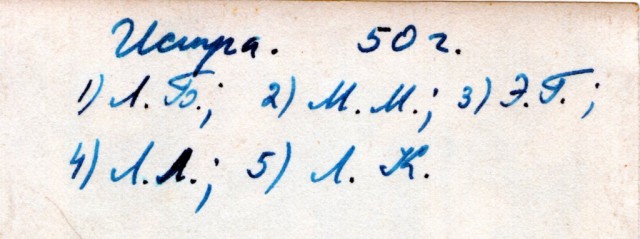 Истра. 50 г.
1) Л. Б.; 2) М. М.; 3) Э. Г.;
4) Л. Л.; 5) Л. К.